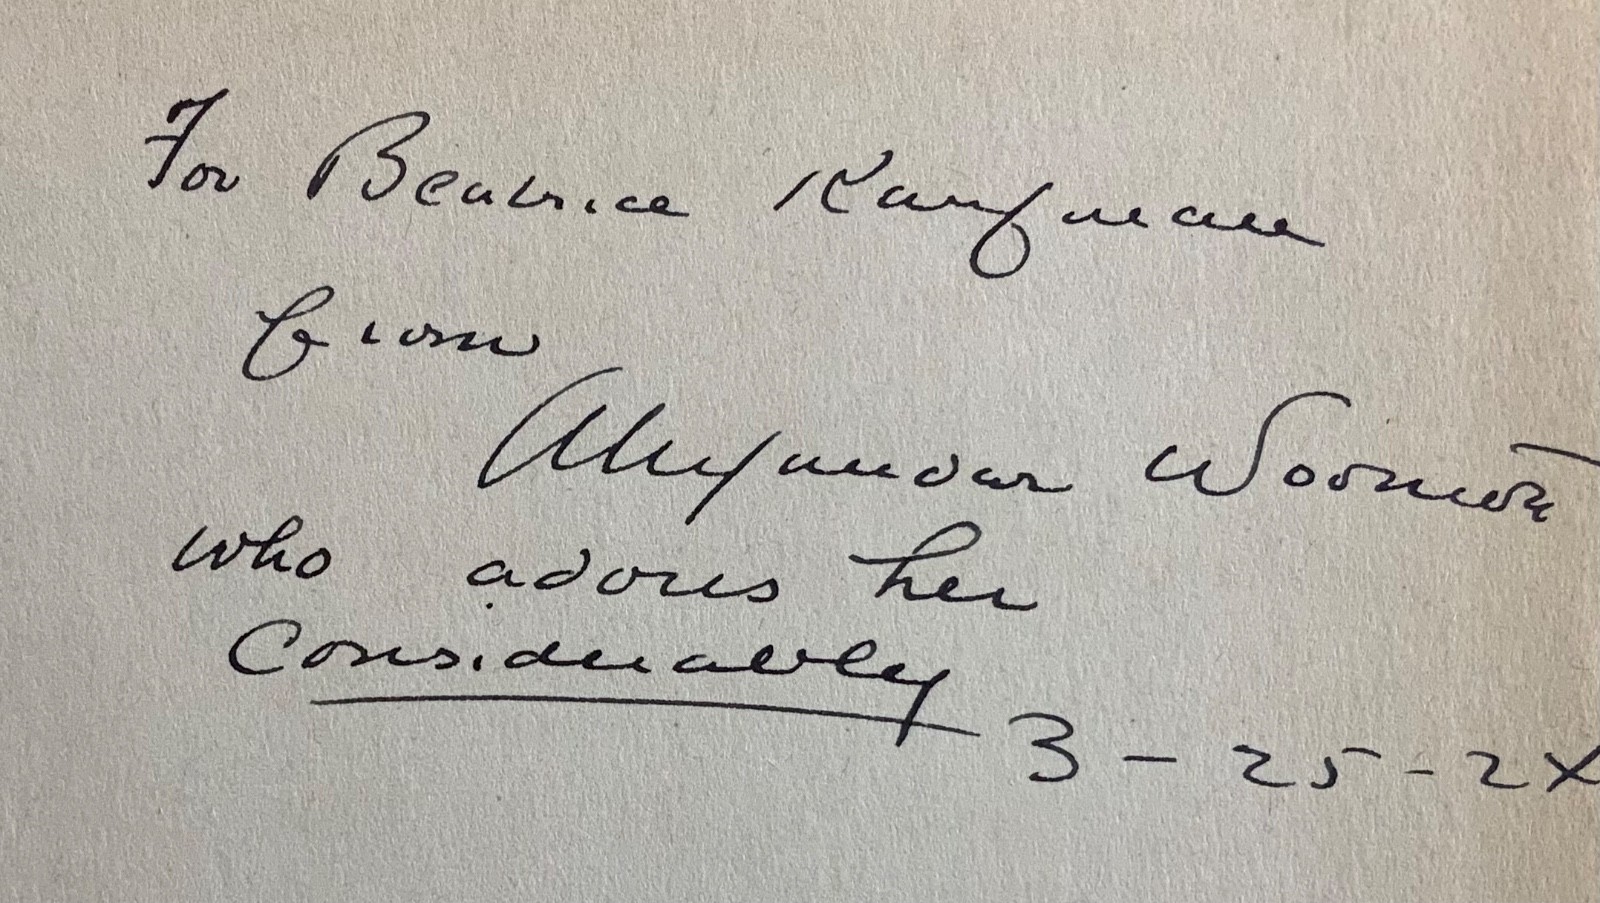 For Beatrice Kaufman
from
Alexander Woollcott
who adores her
considerably
3 - 25 - 24